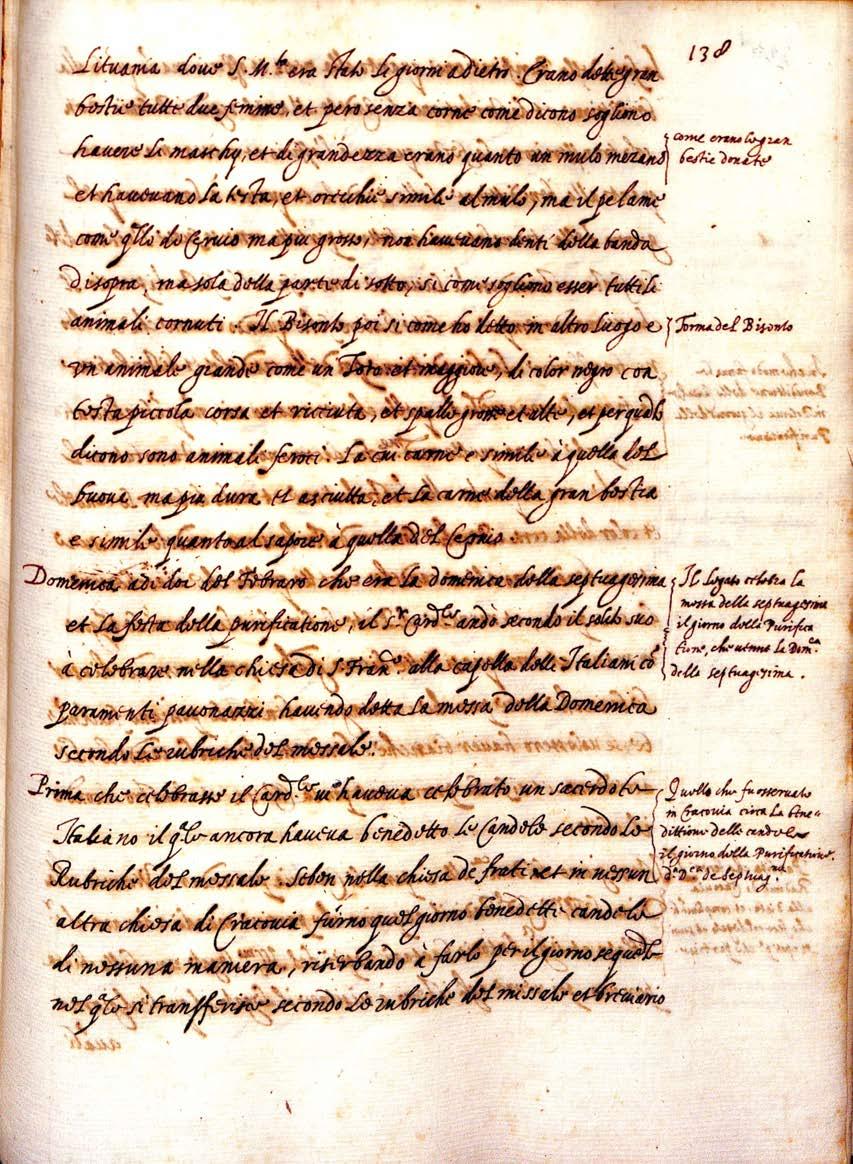 138
Lituania dove S. M.tà era stato li giorni a dietro. Erano dette gran
bestie tutte due femine, et però senza corne come dicono sogliono
havere li maschy, et di grandezza erano quanto un mulo mezano
et havevano la testa, et orecchie simile al mulo, ma il pelame
come qllo de Cervio ma piu grosso, non havevano denti della banda
di sopra, ma sola della parte di sotto, si come sogliono esser tutti li
animali cornuti. Il Bisonto poi si come ho detto in altro luogo e
un animale grande come un Toro et maggiore, di color negro con
testa piccola corsa et ricciuta, et spalle grosse et alte, et per quãto
dicono sono animali feroci. La cui carne e simile à quella del
buove ma piu dura et asciutta, et la carne della gran bestia
e simile quanto al sapore à quella del Cervio.
Domenica adi doi del Febraro che era la domenica della septuagesima
et la festa della purificatione, il S.r Card.le andò secondo il solito suo
à celebrare nella chiesa di S. Fran.co alla capella delli Italiani cõ
paramenti pavonazzi havendo detta la messa della Domenica
secondo le rubriche del messale.
Prima che celebrasse il Card.le vi haveva celebrato un sacerdote
Italiano il qle ancora haveva benedetto le Candele secondo le
Rubriche del messale. Seben nella chiesa de frati et in nessun
altra chiesa di Cracovia furno quel giorno benedette candele
di nessuna maniera, riserbando à farlo per il giorno sequẽte
nel qle si transferisce secondo le rubriche del missale et breviario
come erano le gran
bestie donate
Forma del Bisonto
Il Legato celebra la
messa della septuagesima
il giorno della Purifica
tione, che venne la Dom.ca
della septuagesima.
Quello che fu osservato
in Cracovia circa la Bene=
dittione delle candele
il giorno della Purificatione
de Septuag.